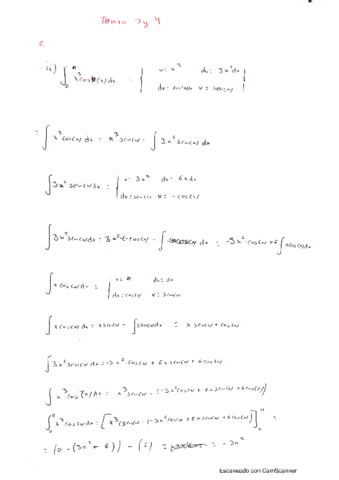 Tema 3 y 4
c
ii) ∫₀^π x³cos(x)dx = | u = x³ du = 3x²dx
dv = cosxdx v = sen(x) |
= ∫x³cos(x)dx = x³sen(x) - ∫3x²sen(x)dx
∫3x²sen(x)dx = | u = 3x² du = 6xdx
dv = sen(x) v = -cos(x) |
∫3x²sen(x)dx = 3x²(-cos(x)) - ∫ dx = -3x²·cos(x) + 6∫xcos(x)dx
∫xcos(x)dx = | u = x du = dx
dv = cos(x) v = sen(x) |
∫xcos(x)dx = xsen(x) - ∫sen(x)dx = xsen(x) + cos(x)
∫3x²sen(x)dx = -3x²·cos(x) + 6xsen(x) + 6cos(x)
∫x³cos(x)dx = x³sen(x) - (-3x²cos(x) + 6xsen(x) + 6cos(x))
∫₀^π x³cos(x)dx = [x³sen(x) - (-3x²cos(x) + 6xsen(x) + 6cos(x))]₀^π =
= (0 - (3π² + 6)) - (6) = = -3π²
Escaneado con CamScanner